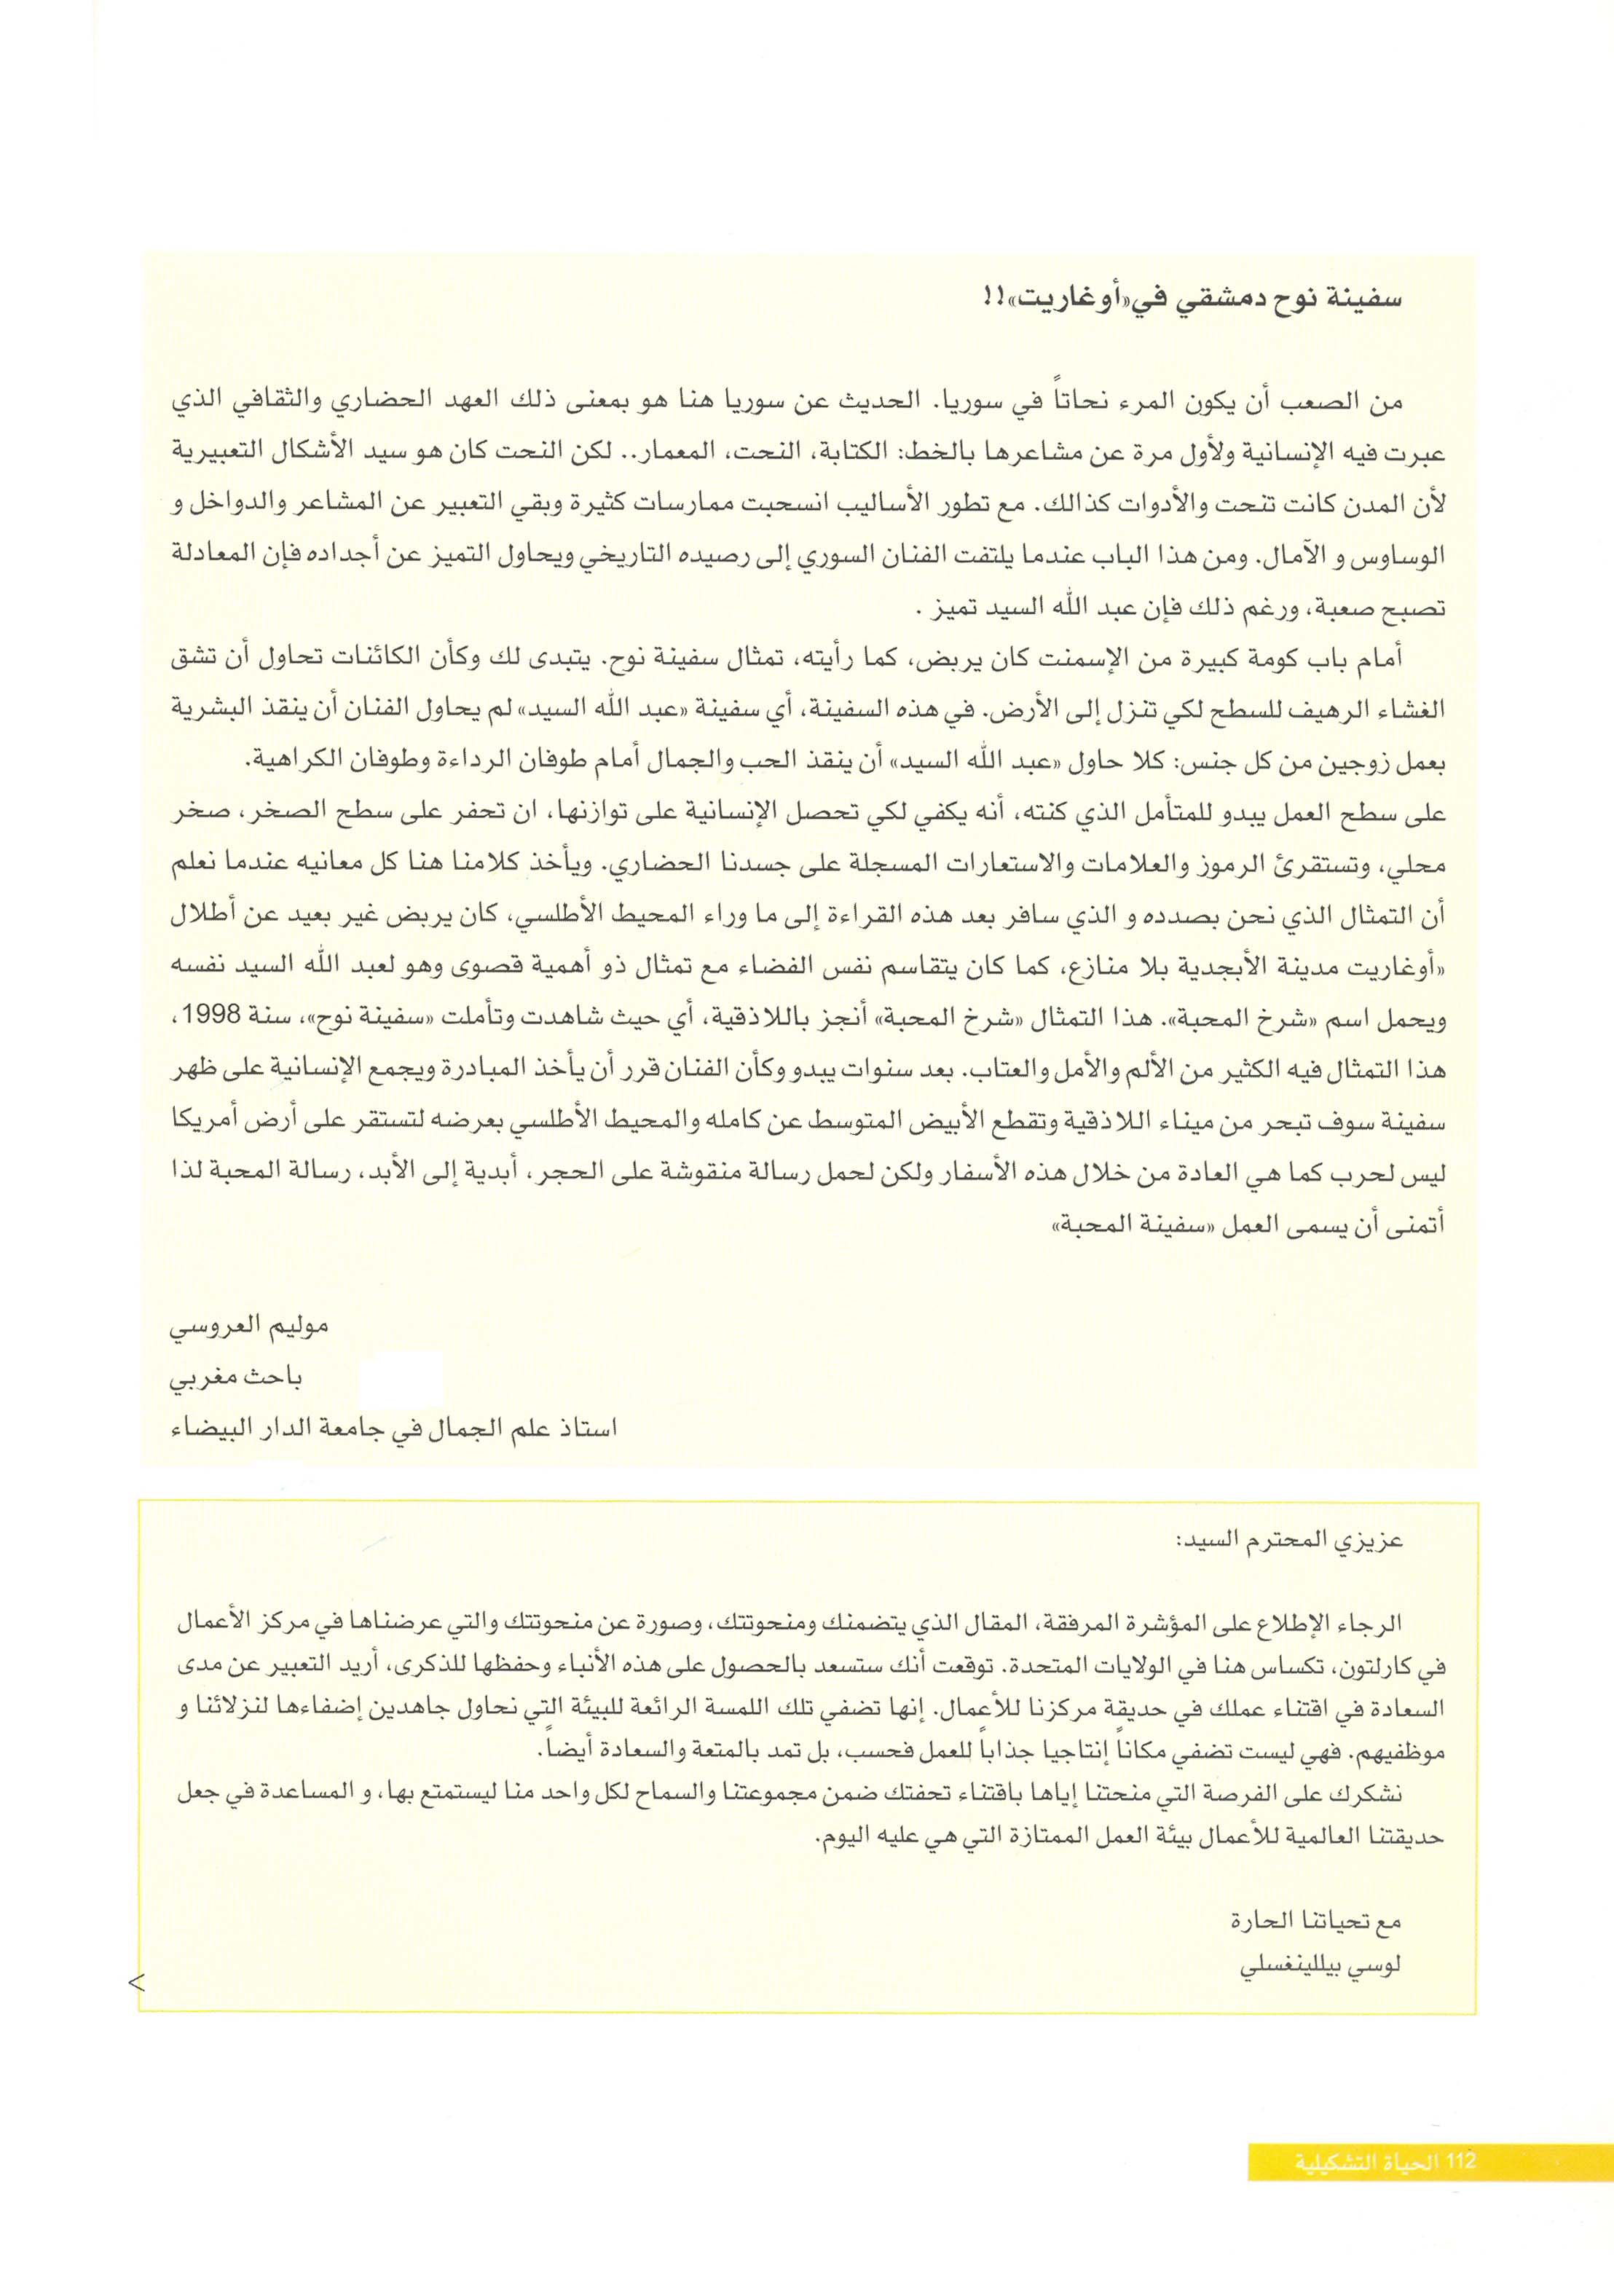 سفينة نوح دمشقي في «أوغاريت»!!
من الصعب أن يكون المرء نحاتاً في سوريا. الحديث عن سوريا هنا هو بمعنى ذلك العهد الحضاري والثقافي الذي
عبرت فيه الإنسانية ولأول مرة عن مشاعرها بالخط: الكتابة، النحت، المعمار.. لكن النحت كان هو سيد الأشكال التعبيرية
لأن المدن كانت تنحت والأدوات كذالك. مع تطور الأساليب انسحبت ممارسات كثيرة وبقي التعبير عن المشاعر والدواخل و
الوساوس و الآمال. ومن هذا الباب عندما يلتفت الفنان السوري إلى رصيده التاريخي ويحاول التميز عن أجداده فإن المعادلة
تصبح صعبة، ورغم ذلك فإن عبد الله السيد تميز .
أمام باب كومة كبيرة من الإسمنت كان يربض، كما رأيته، تمثال سفينة نوح. يتبدى لك وكأن الكائنات تحاول أن تشق
الغشاء الرهيف للسطح لكي تنزل إلى الأرض. في هذه السفينة، أي سفينة «عبد الله السيد» لم يحاول الفنان أن ينقذ البشرية
بعمل زوجين من كل جنس: كلا حاول «عبد الله السيد» أن ينقذ الحب والجمال أمام طوفان الرداءة وطوفان الكراهية.
على سطح العمل يبدو للمتأمل الذي كنته، أنه يكفي لكي تحصل الإنسانية على توازنها، ان تحفر على سطح الصخر، صخر
محلي، وتستقرئ الرموز والعلامات والاستعارات المسجلة على جسدنا الحضاري. ويأخذ كلامنا هنا كل معانيه عندما نعلم
أن التمثال الذي نحن بصدده و الذي سافر بعد هذه القراءة إلى ما وراء المحيط الأطلسي، كان يربض غير بعيد عن أطلال
«أوغاريت مدينة الأبجدية بلا منازع، كما كان يتقاسم نفس الفضاء مع تمثال ذو أهمية قصوى وهو لعبد الله السيد نفسه
ويحمل اسم «شرخ المحبة». هذا التمثال «شرخ المحبة» أنجز باللاذقية، أي حيث شاهدت وتأملت «سفينة نوح»، سنة 1998،
هذا التمثال فيه الكثير من الألم والأمل والعتاب. بعد سنوات يبدو وكأن الفنان قرر أن يأخذ المبادرة ويجمع الإنسانية على ظهر
سفينة سوف تبحر من ميناء اللاذقية وتقطع الأبيض المتوسط عن كامله والمحيط الأطلسي بعرضه لتستقر على أرض أمريكا
ليس لحرب كما هي العادة من خلال هذه الأسفار ولكن لحمل رسالة منقوشة على الحجر، أبدية إلى الأبد، رسالة المحبة لذا
أتمنى أن يسمى العمل «سفينة المحبة»
موليم العروسي
باحث مغربي
استاذ علم الجمال في جامعة الدار البيضاء
عزيزي المحترم السيد:
الرجاء الإطلاع على المؤشرة المرفقة، المقال الذي يتضمنك ومنحوتتك، وصورة عن منحوتتك والتي عرضناها في مركز الأعمال
في كارلتون، تكساس هنا في الولايات المتحدة. توقعت أنك ستسعد بالحصول على هذه الأنباء وحفظها للذكرى، أريد التعبير عن مدى
السعادة في اقتناء عملك في حديقة مركزنا للأعمال. إنها تضفي تلك اللمسة الرائعة للبيئة التي نحاول جاهدين إضفاءها لنزلائنا و
موظفيهم. فهي ليست تضفي مكاناً إنتاجيا جذاباً للعمل فحسب، بل تمد بالمتعة والسعادة أيضاً.
نشكرك على الفرصة التي منحتنا إياها باقتناء تحفتك ضمن مجموعتنا والسماح لكل واحد منا ليستمتع بها، و المساعدة في جعل
حديقتنا العالمية للأعمال بيئة العمل الممتازة التي هي عليه اليوم.
مع تحياتنا الحارة
لوسي بيللينغسلي
112 الحياة التشكيلية